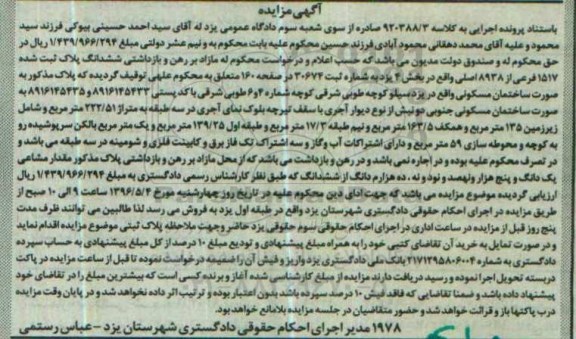 آگهی مزایده
باستناد پرونده اجرایی به کلاسه ۹۲۰۳۸۸/۳ صادره از سوی شعبه سوم دادگاه عمومی یزد له آقای سید احمد حسینی بیوکی فرزند سید
محمود و علیه آقای محمد دهقانی محمود آبادی فرزند حسین محکوم علیه بابت محکوم به و نیم عشر دولتی مبلغ ۱/۴۳۹/۹۶۶/۲۹۴ ریال در
حق محکوم له و صندوق دولت مدیون می باشد که حسب اعلام و درخواست محکوم له مازاد بر رهن و بازداشتی ششدانگ پلاک ثبت شده
۱۵۱۷ فرعی از ۸۹۳۸ اصلی واقع در بخش ۴ یزد به شماره ثبت ۳۰۶۷۴ در صفحه ۱۶۰ متعلق به محکوم علیه توقیف گردیده که پلاک مذکور به
صورت ساختمان مسکونی واقع در یزد سیلو کوچه طوبی شرقی کوچه شماره ۴ و ۶ طوبی شرقی با کد پستی ۸۹۱۶۱۴۵۴۳۳ و ۸۹۱۶۱۴۵۴۳۵ به
صورت ساختمان مسکونی جنوبی دو نبش از نوع دیوار آجری با سقف تیرچه بلوک نمای آجری در سه طبقه به متراژ ۲۲۲/۵۱ متر مربع و شامل
زیرزمین ۱۳۵ متر مربع و همکف ۱۶۳/۵ متر مربع و نیم طبقه ۱۷/۳ متر مربع و طبقه اول ۱۳۹/۲۵ متر مربع و یک متر مربع بالکن سرپوشیده رو
به کوچه و محوطه سازی ۵۹ متر مربع و دارای اشتراکات آب و گاز و سه اشتراک تک فاز برق و کابینت فلزی و شومینه در سه طبقه می باشد و
در تصرف محکوم علیه بوده و در اجاره نمی باشد و در رهن و بازداشت می باشد که از محل مازاد بر رهن و بازداشتی پلاک مذکور مقدار مشاعی
یک دانگ و پنج هزار ونهصد و نود و نه . ده هزارم دانگ از ششدانگ که طبق نظر کارشناس رسمی دادگستری به مبلغ ۱/۴۳۹/۹۶۶/۲۹۴ ریال
ارزیابی گردیده موضوع مزایده می باشد که جهت ادای دین محکوم علیه در تاریخ روز چهارشنبه مورخ ۱۳۹۶/۵/۴ ساعت ۹ الی ۱۰ صبح از
طریق مزایده در اجرای احکام حقوقی دادگستری شهرستان یزد واقع در طبقه اول یزد به فروش می رسد لذا طالبین می توانند ظرف مدت
پنج روز قبل از مزایده در ساعت اداری در اجرای احکام حقوقی سوم حقوقی یزد حاضر وجهت ملاحظه پلاک ثبتی موضوع مزایده اقدام نماید
و در صورت تمایل به خرید آن تقاضای کتبی خود را به همراه مبلغ پیشنهادی و تودیع مبلغ ۱۰ درصد از کل مبلغ پیشنهادی به حساب سپرده
دادگستری به شماره ۲۱۷۱۲۹۵۸۰۶۰۰۴ بانک ملی دادگستری یزد واریز و فیش آن را ضمیمه درخواست نموده تا قبل از ساعت مزایده در پاکت
دربسته تحویل اجرا نموده و رسید دریافت دارند مزایده از مبلغ کارشناسی شده آغاز و برنده کسی است که بیشترین مبلغ را در تقاضای خود
پیشنهاد داده باشد و ضمنا تقاضایی که فاقد فیش ۱۰ درصد سپرده باشد بدون اعتبار بوده و ترتیب اثر داده نخواهد شد و در پایان وقت مزایده
درب پاکتها باز و قرائت خواهد شد و حضور متقاضیان در جلسه مزایده بلامانع خواهد بود.
۱۹۷۸ مدیر اجرای احکام حقوقی دادگستری شهرستان یزد - عباس رستمی